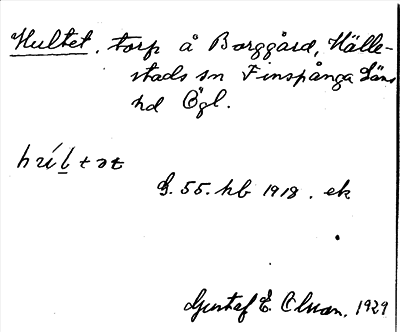 Hultet, torp å Borggård, Hälle-
stads sn Finspånga Läns
hd Ögl.
G. 55. hb 1918. ek
Gustaf E. 1929